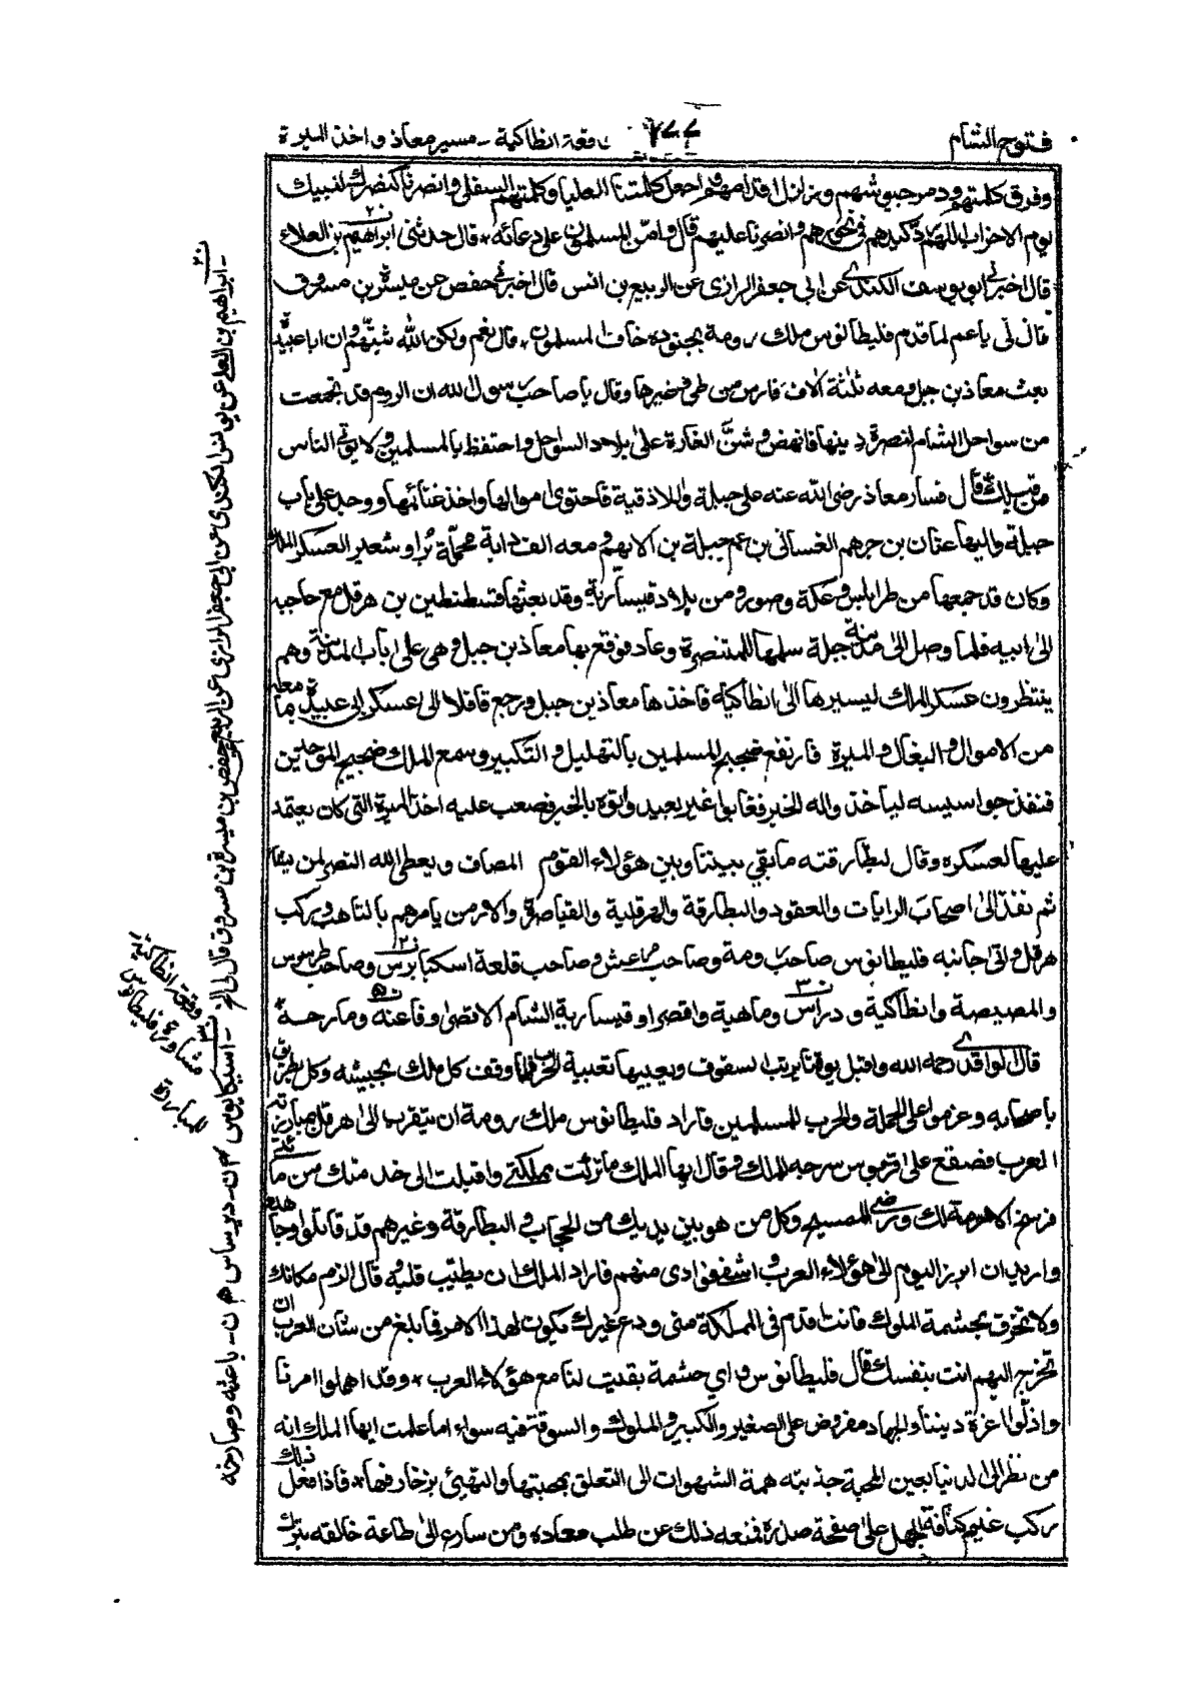 فتوح الشام
٢٤٤
وقعة انطاكية - مسير معاذ و اخذ الميرة
وفرق كلمتهم ودمر جيوشهم وزلزل اقدامهم واجعل كلمتنا العليا وكلمتهم السفلى وانصرنا كنصرك لنبيك
يوم الاحزاب اللهم كيدهم في نحورهم وانصرنا عليهم قال وامن المسلمون على دعائه قال حدثنى ابراهيم بن العلاء
قال اخبرني ابو يوسف الكندي عن ابي جعفر الرازى عن الربيع بن انس قال اخبرني حفص عن ميسرة بن مسروق
قال لي يا عم لما قدم فليطانوس ملك رومة بجنوده خاف المسلمون قال نعم ولكن الله ثبتهم وان ابا عبيدة
بعث معاذ بن جبل ومعه ثلثة الاف فارس من طي وغيرها وقال يا صاحب رسول الله ان الروم قد تجمعت
من سواحل الشام لنصرة دينها فانهض وشن الغارة على بلاد السواحل واحتفظ بالمسلمين ولا يؤتى الناس
من قبلك قال فسار معاذ رضى الله عنه على جبلة واللاذقية فاحتوى اموالها واخذ غنائمها ووجد على باب
جبلة واليها عنان بن جرهم الغسانى بن عم جبلة بن الايهم ومعه الف دابة محملة برا وشعير العسكر الملك
وكان قد جمعها من طرابلس وعكة وصور ومن بلاد قيسارية وقد بعثها قسطنطين بن هرقل مع حاجبه
الى ابيه فلما وصل الى مدينة جبلة سلمها للمتنصرة وعاد فوقع بها معاذ بن جبل وهي على باب المدينة وهم
ينتظرون عسكر الملك ليسيرها الى انطاكية فاخذها معاذ بن جبل ورجع قافلا الى عسكر ابي عبيدة بما معه
من الاموال والبغال والميرة فارتفع ضجيج المسلمين بالتهليل والتكبير وسمع الملك ضجيج الموحدين
فنفذ جواسيسه لياخذ واله الخبر فغابوا غير بعيد واتوه بالخبر فصعب عليه اخذ الميرة التى كان يعتمد
عليها لعسكره وقال لبطارقته ما بقي بيننا وبين هؤلاء القوم المصاف ويعطى الله النصر لمن يشا
ثم نفذ الى اصحاب الرايات والعقود والبطارقة والهرقلية والقياصرة والارمن يامرهم بالتاهب وركب
هرقل والى جانبه فليطانوس صاحب رومة وصاحب مرعش وصاحب قلعة اسكبابرس وصاحب طرسوس
والمصيصة وانطاكية ودراس وماهية واقصرا وقيسارية الشام الاقصى وقاعنه ومارحه
قال الواقدي رحمه الله واقبل يوقنا يرتب لصفوف ويعبيها تعبية الحرب فلما وقف كل ملك بجيشه وكل بطريق
باصحابه وعزموا على الحملة والحرب للمسلمين فاراد فليطانوس ملك رومة ان يتقرب الى هرقل بمبارزته
العرب فصقع على قربوس سرجه للملك وقال ايها الملك ما تركت مملكتي واقبلت الى خدمتك من مائتي
فرسخ الا لحرمة الملك ورضى للمسيح وكل من هو بين يديك من الحجاب والبطارقة وغيرهم قد قاتلوا وجاهدوا
واريد ان ابرز اليوم الى هؤلاء العرب واشفي فوادى منهم فاراد الملك ان يطيب قلبه وقال الزم مكانك
ولا تخرق بحشمة الملوك فانت اقدم في المملكة منى ودع غيرك يكون لهذا الامر فما بلغ من شان العرب ان
تخرج اليهم انت بنفسك قال فليطانوس واي حشمة بقيت لنا مع هؤلاء العرب وقد اهملوا امرنا
واذلوا عزة ديننا والجهاد مفروض على الصغير والكبير والملوك والسوقة فيه سواء اما علمت ايها الملك انه
من نظر الى الدنيا بعين المحبة جذبته همة الشهوات الى التعلق بمحبتها والتهيئ بزخارفها فاذا فعل ذلك
ركب غيم كثافة الجهل على صفحة صدره فمنعه ذلك عن طلب معاده ومن سارع الى طاعة خالقه بترك
٢ن - ابراهيم بن العلا عن يونس الكندى عن ابى جعفر الرازى عن الربيع عن حفص بن ميسرة بن مسروق قال لى الخ
٣ن - اسبكابوس ٣ن - ديرساس ٥ن - باعثه وصارخه
وقعة انطاكية
مشاورة فليطانوس
للمبارزة